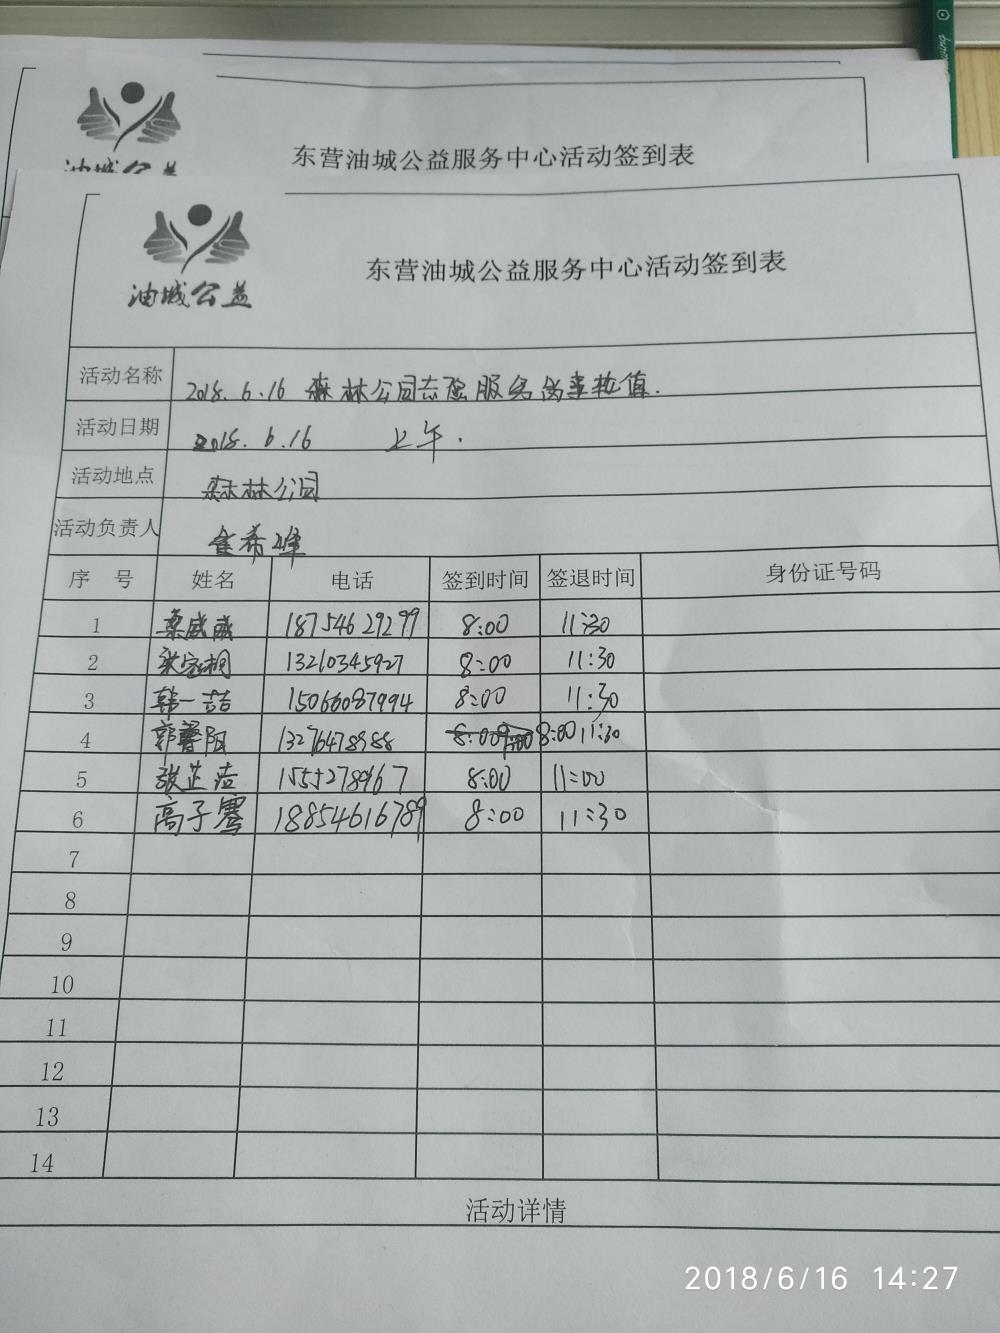 东营油城公益服务中心活动签到表
油城公益
东营油城公益服务中心活动签到表
油城公益
活动名称 2018.6.16 森林公园志愿服务 值.
活动日期 2018.6.16 上午.
活动地点 森林公园
活动负责人 希峰
序 号 姓名 电话 签到时间 签退时间 身份证号码
1 桑威威 18754629299 8:00 11:30
2 13210345927 8:00 11:30
3 韩一喆 15066087994 8:00 11:30
4 郭馨阳 13276478988 8:00 11:30
5 张芷洁 8:00 11:00
6 高子骞 18854616789 8:00 11:30
7
8
9
10
11
12
13
14
活动详情
2018/6/16 14:27